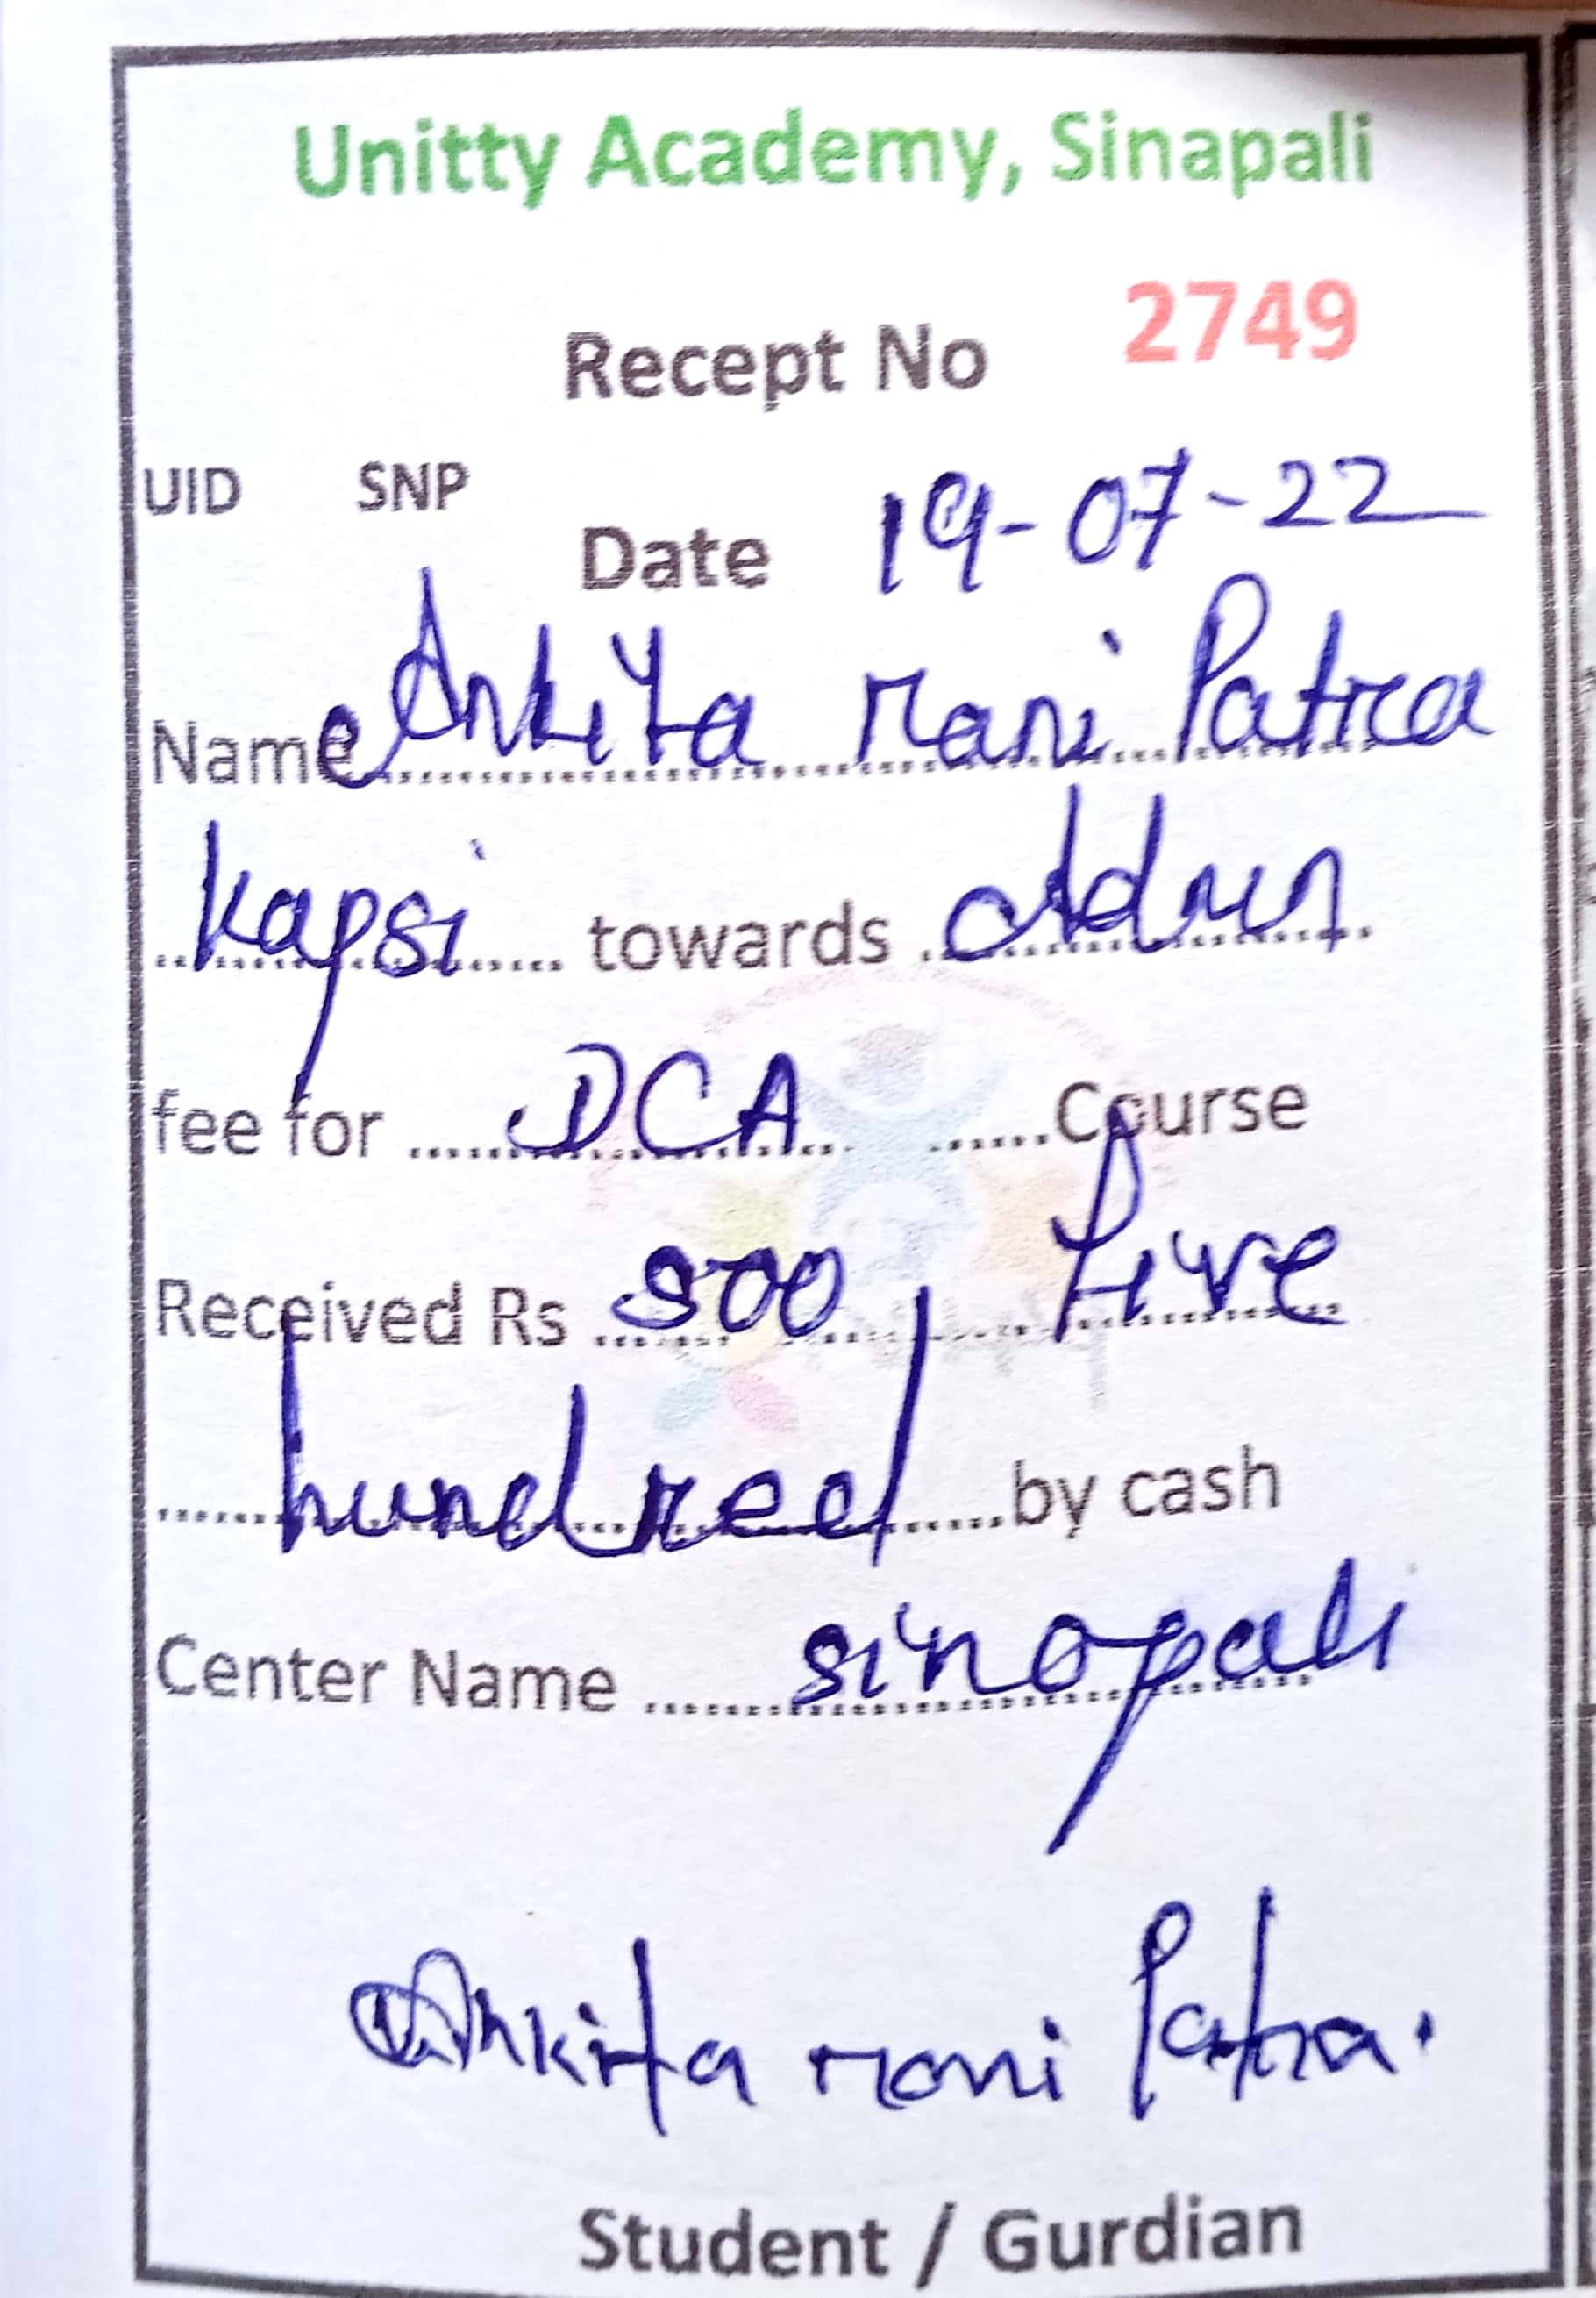 Unitty Academy, Sinapali
Recept No 2749
UID SNP
Date 19-07-22
Name Ankita rani Patra
Kapsi towards Admn
fee for DCA Course
Received Rs 500, five
hundred by cash
Center Name sinapali
Ankita rani Patra.
Student / Gurdian